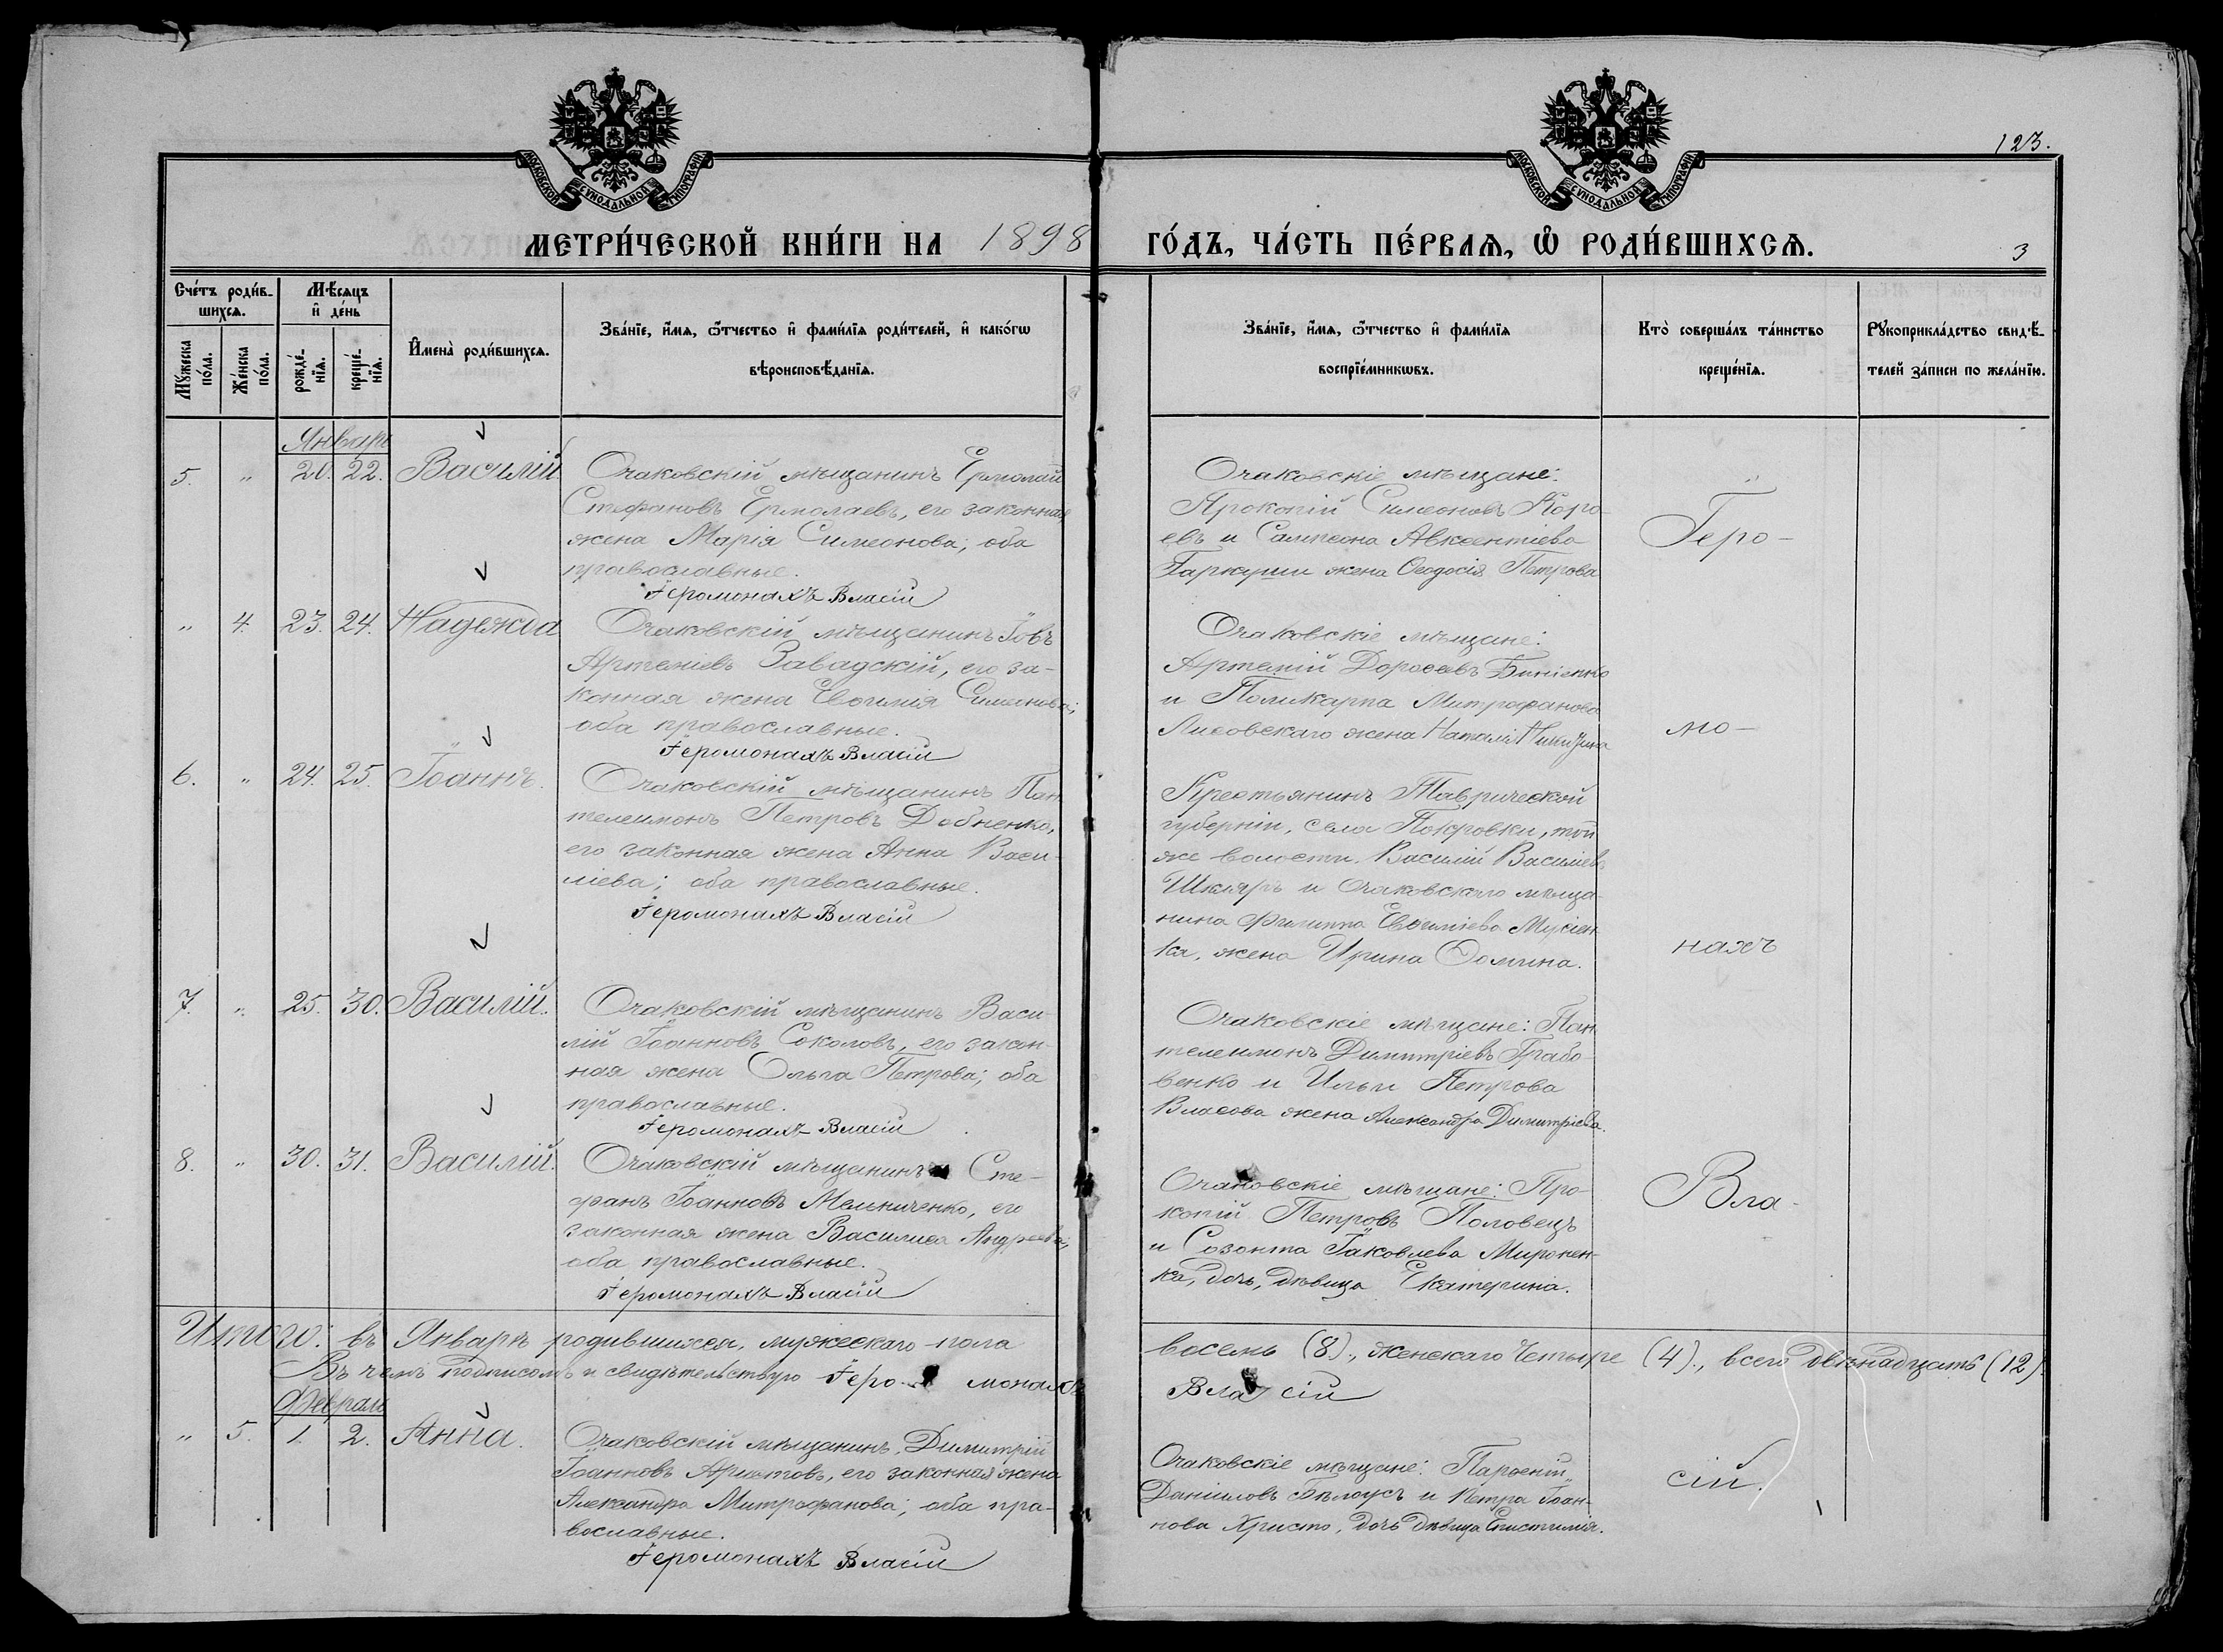 123.
МОСКОВСКОЙ СѴНОДАЛЬНОЙ ТИПОГРАФІИ
МОСКОВСКОЙ СѴНОДАЛЬНОЙ ТИПОГРАФІИ
МЕТРИ́ЧЕСКОЙ КНИ́ГИ НА 1898
ГО́ДЪ, ЧА́СТЬ ПЕ́РВАѦ, Ѡ҆ РОДИ́ВШИХСѦ.
3
Сче́тъ роди́в-
шихсѧ.
Мꙋ́жеска по́ла.
Же́нска по́ла.
Мѣ́сѧцъ
и҆ де́нь
рожде́-
нїѧ.
креще́-
нїѧ.
И҆мена̀ роди́вшихсѧ.
Зва́нїе, и҆́мѧ, ѻ҆́тчество и҆ фами́лїѧ роди́телей, и҆ како́гѡ
вѣроисповѣ́данїѧ.
Зва́нїе, и҆́мѧ, ѻ҆́тчество и҆ фами́лїѧ
воспрїе́мникѡвъ.
Кто̀ соверша́лъ та́инство
креще́нїѧ.
Рꙋкоприкла́дство свидѣ́-
телей за́писи по жела́нїю.
Январь
5. " 20. 22. Василій
Очаковскій мѣщанинъ Ермолай
Стефановъ Ермолаевъ, его законная
жена Марія Симеонова; оба
православные.
Іеромонахъ Власій
Очаковскіе мѣщане:
Прокопій Симеоновъ Коро
евъ и Сампсона Авксентіева
Гаркуши жена Ѳеодосія Петрова
Іеро-
" 4. 23. 24. Надежда
Очаковскій мѣщанинъ Іовъ
Артеміевъ Завадскій, его за-
конная жена Евѳимія Симеонова;
оба православные.
Іеромонахъ Власій
Очаковскіе мѣщане:
Артемій Дороѳеевъ
и Поликарпа Митрофанова
Лисовскаго жена
мо-
6. " 24. 25. Іоаннъ.
Очаковскій мѣщанинъ Пан
телеимонъ Петровъ Добненко,
его законная жена Анна Васи-
ліева; оба православные.
Іеромонахъ Власій
Крестьянинъ Таврической
губерніи, села Покровки, той
же волости. Василій Василіевъ
Шкляръ и Очаковскаго мѣща-
нина Филиппа Евѳиміева Мусіен
ка, жена Ирина Ѳомина.
нахъ
7. " 25. 30. Василій.
Очаковскій мѣщанинъ Васи-
лій Іоанновъ Соколовъ, его закон-
ная жена Ольга Петрова; оба
православные.
Іеромонахъ Власій
Очаковскіе мѣщане: Пан
телеимонъ Димитріевъ Грабо-
венко и Ильи Петрова
Власова жена Александра Димитріева.
8. " 30. 31. Василій.
Очаковскій мѣщанинъ Сте-
фанъ Іоанновъ Мельниченко, его
законная жена Василиса Андреева;
оба православные.
Іеромонахъ Власій
Очаковскіе мѣщане: Про-
копій Петровъ Половецъ
и Созонта Іаковлева Миронен-
ка, дочь, дѣвица Екатерина.
Вла-
Итого: въ Январѣ родившихся, мужескаго пола
восемь (8)., женскаго четыре (4)., всего двѣнадцать (12).
Въ чемъ подписомъ и свидѣтельствую Іеро монахъ
Вла сій
Февраль
" 5. 1. 2. Анна.
Очаковскій мѣщанинъ, Димитрій
Іоанновъ Аристовъ, его законная жена
Александра Митрофанова; оба пра-
вославные.
Іеромонахъ Власій
Очаковскіе мѣщане: Парѳеній
Даніиловъ Бѣлоусъ и Петра Іоан-
нова Христо, дочь дѣвица Епистимія.
сій.